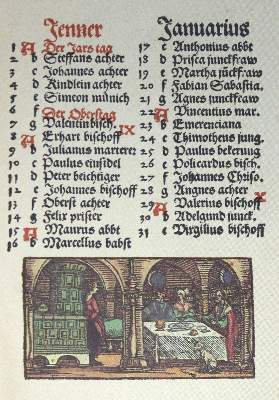 Jenner
1 A Der Jars tag
2 b Steffans achter
3 c Johannes achter
4 d Kindlein achter
5 e Simeon münich
6 f Der Oberstag
7 g Valentin bisch.
IX
8 A Erhart bischoff
9 b Julianus marterer
10 c Paulus einsidel
11 d Peter beichtiger
12 e Johannes bischoff
13 f Oberst achter
14 g Felix prister
15 A Maurus abbt
16 b Marcellus babst
Januarius
17 c Anthonius abbt
18 d Prisca junckfraw
19 e Martha jückfraw
20 f Fabian Sabastia.
21 g Agnes junckfraw
22 A Vincentius mar.
23 b Emerenciana
24 c Timotheus jung.
25 d Paulus bekerung
26 e Policardus bisch.
27 f Johannes Chriso.
28 g Angnes achter
X
29 A Valerius bischoff
30 b Adelgund junck.
31 c Virgilius bischoff